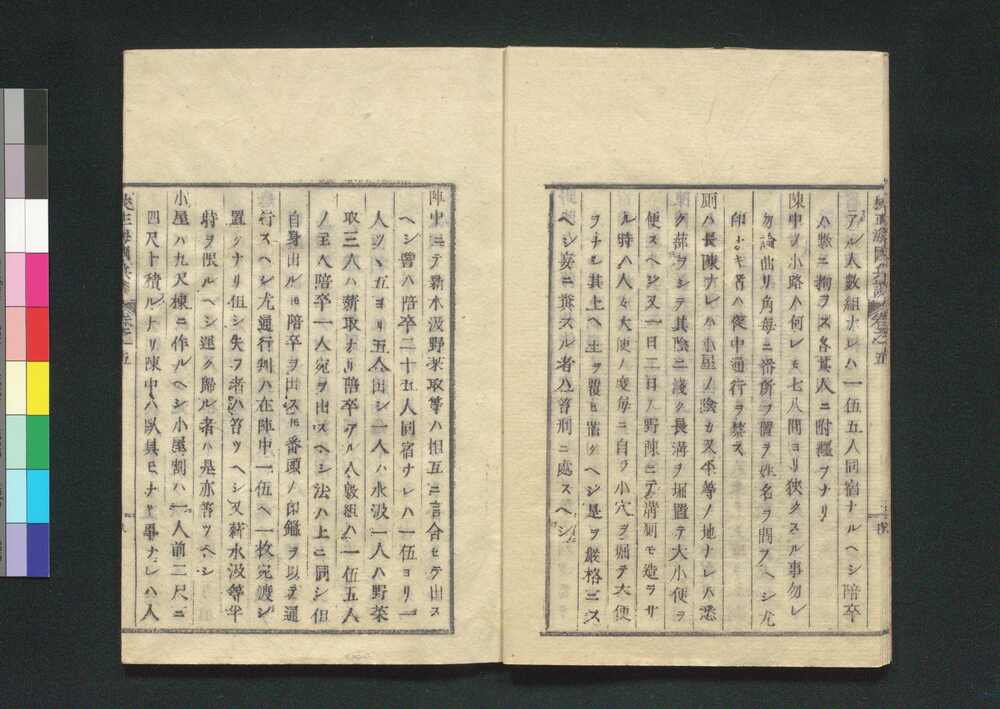 アル人数組ナレハ一伍五人同宿ナルヘシ陪卒
ハ数ニ拘ヲス各其人ニ附纒フナリ
陳中ノ小路ハ何レモ七八間ヨリ狹クスル事勿レ
勿論曲リ角毎ニ番所ヲ置ヲ姓名ヲ問フヘシ尤
印ナキ者ハ夜中通行ヲ禁ス
厠ハ長陳ナレハ小屋ノ陰カ又不等ノ地ナレハ悉
ク蔀ヲシテ其陰ニ淺ク長溝ヲ堀置テ大小便ヲ
便スヘシ又一日二日ノ野陳ニテ溝厠モ造ラサ
ル時ハ人々大便ノ度毎ニ自ラ小穴ヲ堀テ大便
ヲナシ其上ヘ土ヲ覆ヒ置クヘシ是ヲ嚴格ニス
ヘシ妄ニ糞スル者ハ笞刑ニ處スヘシ
陣中ニテ薪水汲野菜取等ハ相互ニ言合セテ出ス
ヘシ譬ハ陪卒二十五人同宿ナレハ一伍ヨリ一
人ツヽ五ヨリ五人出シ一人ハ水汲一人ハ野菜
取三人ハ薪取ナリ陪卒アル人數組ハ一伍五人
ノ主ヘ陪卒一人宛ヲ出スヘシ法ハ上ニ同シ但
自身出ルモ陪卒ヲ出スモ番頭ノ印鑑ヲ以テ通
行スヘシ尤通行判ハ在陣中一伍ヘ一枚宛渡シ
置クナリ但シ失フ者ハ笞ツヘシ又薪水汲等半
時ヲ限ルヘシ遲ク歸ル者ハ是亦笞ツヘシ
小屋ハ九尺棟ニ作ルヘシ小屋割ハ一人前二尺ニ
四尺ト積ルナリ陳中ハ臥具モナキ事ナレハ人